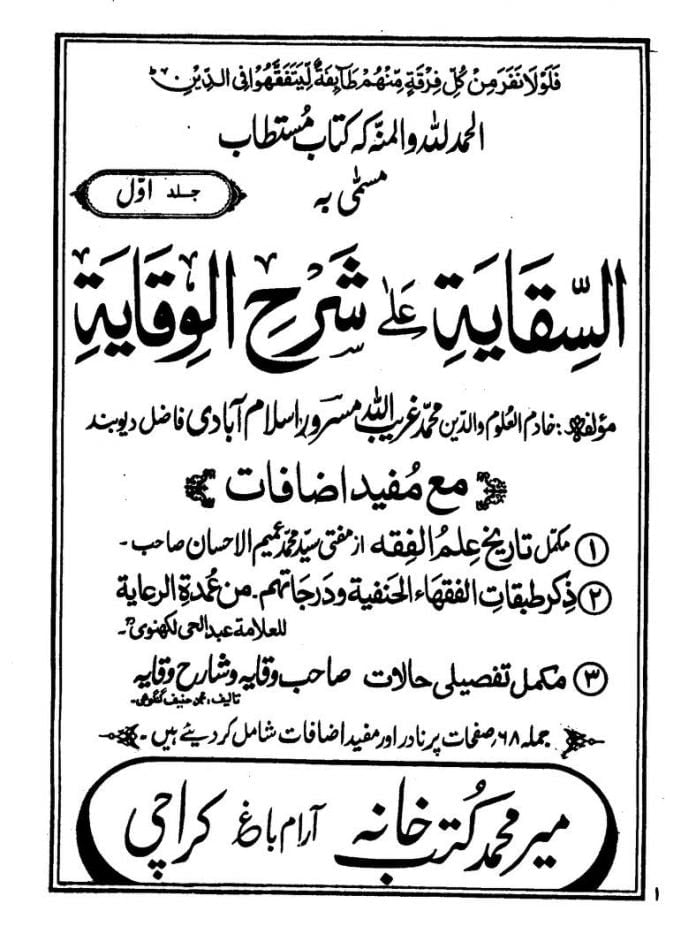 فَلَوْلَا نَفَرَ مِنْ كُلِّ فِرْقَةٍ مِّنْهُمْ طَآئِفَةٌ لِّيَتَفَقَّهُوْا فِي الدِّيْنِ ط
الحمد للہ والمنہ کہ کتاب مُستطاب
مسمّٰی بہ
جلد اوّل
السِّقَايَةِ عَلٰى شَرْحِ الْوِقَايَةِ
مؤلفہ: خادم العلوم والدین محمّد غریب اللہ مسرور اسلام آبادی فاضل دیوبند
مع مُفید اضافات
① مکمّل تاریخ علمُ الفِقہ از مفتی سیّد محمّد عمیم الاحسان صاحب۔
② ذِکر طبقاتِ الفقہاء الحنفیة ودَرجَاتہم۔ من عُمدةِ الرعایة
للعلامة عبد الحی لکھنوی۔
③ مکمل تفصیلی حالات صاحب وقایہ وشارح وقایہ
تالیف: محمد حنیف گنگوہی۔
جملہ ۶۸ صفحات پر نادر اور مفید اضافات شامل کر دیئے ہیں۔
میر محمد کُتب خانہ آرام باغ کراچی
۱